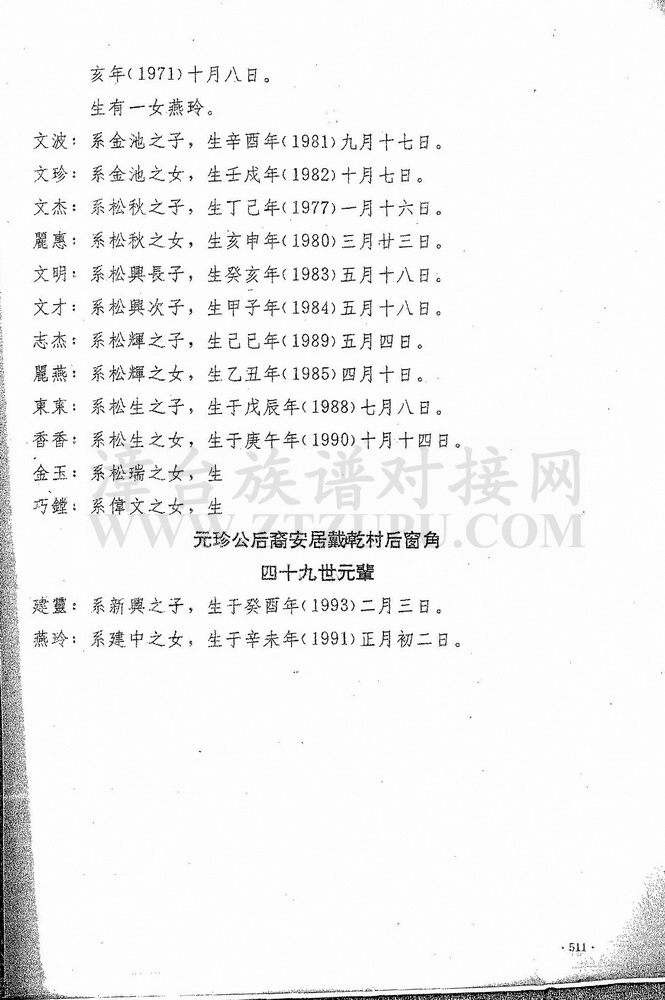 亥年(1971)十月八日。
生有一女燕玲。
文波：系金池之子，生辛酉年(1981)九月十七日。
文珍：系金池之女，生壬戌年(1982)十月七日。
文杰：系松秋之子，生丁己年(1977)一月十六日。
麗惠：系松秋之女，生亥申年(1980)三月廿三日。
文明：系松興長子，生癸亥年(1983)五月十八日。
文才：系松興次子，生甲子年(1984)五月十八日。
志杰：系松輝之子，生己巳年(1989)五月四日。
麗燕：系松輝之女，生乙丑年(1985)四月十日。
東東：系松生之子，生于戊辰年(1988)七月八日。
香香：系松生之女，生于庚午年(1990)十月十四日。
金玉：系松瑞之女，生
巧鏜：系偉文之女，生
漳台族谱对接网
WWW.ZTZUPU.COM
元珍公后裔安居戴乾村后窗角
四十九世元輩
建靈：系新興之子，生于癸酉年(1993)二月三日。
燕玲：系建中之女，生于辛未年(1991)正月初二日。
·511·